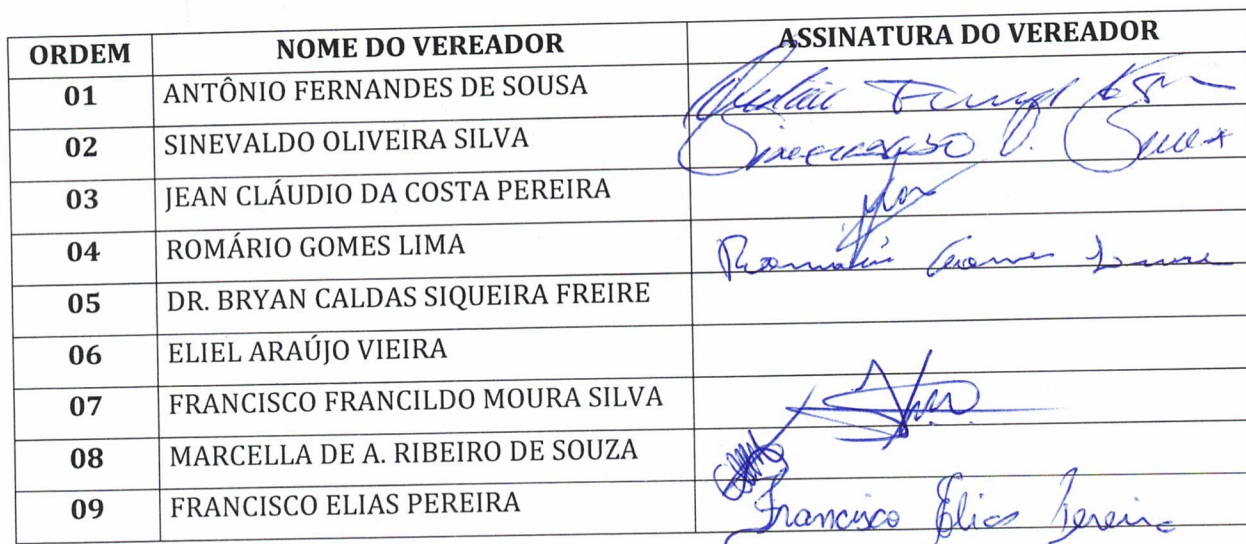 ORDEM NOME DO VEREADOR ASSINATURA DO VEREADOR
01 ANTÔNIO FERNANDES DE SOUSA
02 SINEVALDO OLIVEIRA SILVA
03 JEAN CLÁUDIO DA COSTA PEREIRA
04 ROMÁRIO GOMES LIMA Romário Gomes Lima
05 DR. BRYAN CALDAS SIQUEIRA FREIRE
06 ELIEL ARAÚJO VIEIRA
07 FRANCISCO FRANCILDO MOURA SILVA
08 MARCELLA DE A. RIBEIRO DE SOUZA
09 FRANCISCO ELIAS PEREIRA Francisco Elias Pereira